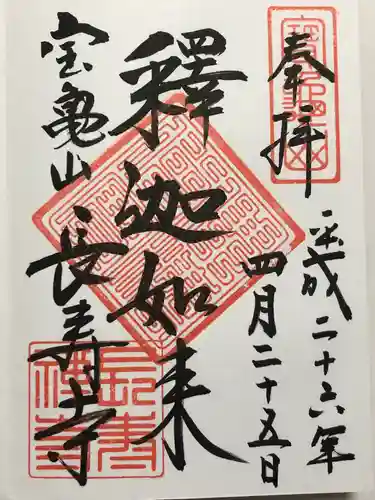 奉拝
平成二十六年
四月二十五日
釋迦如来
宝亀山長寿寺